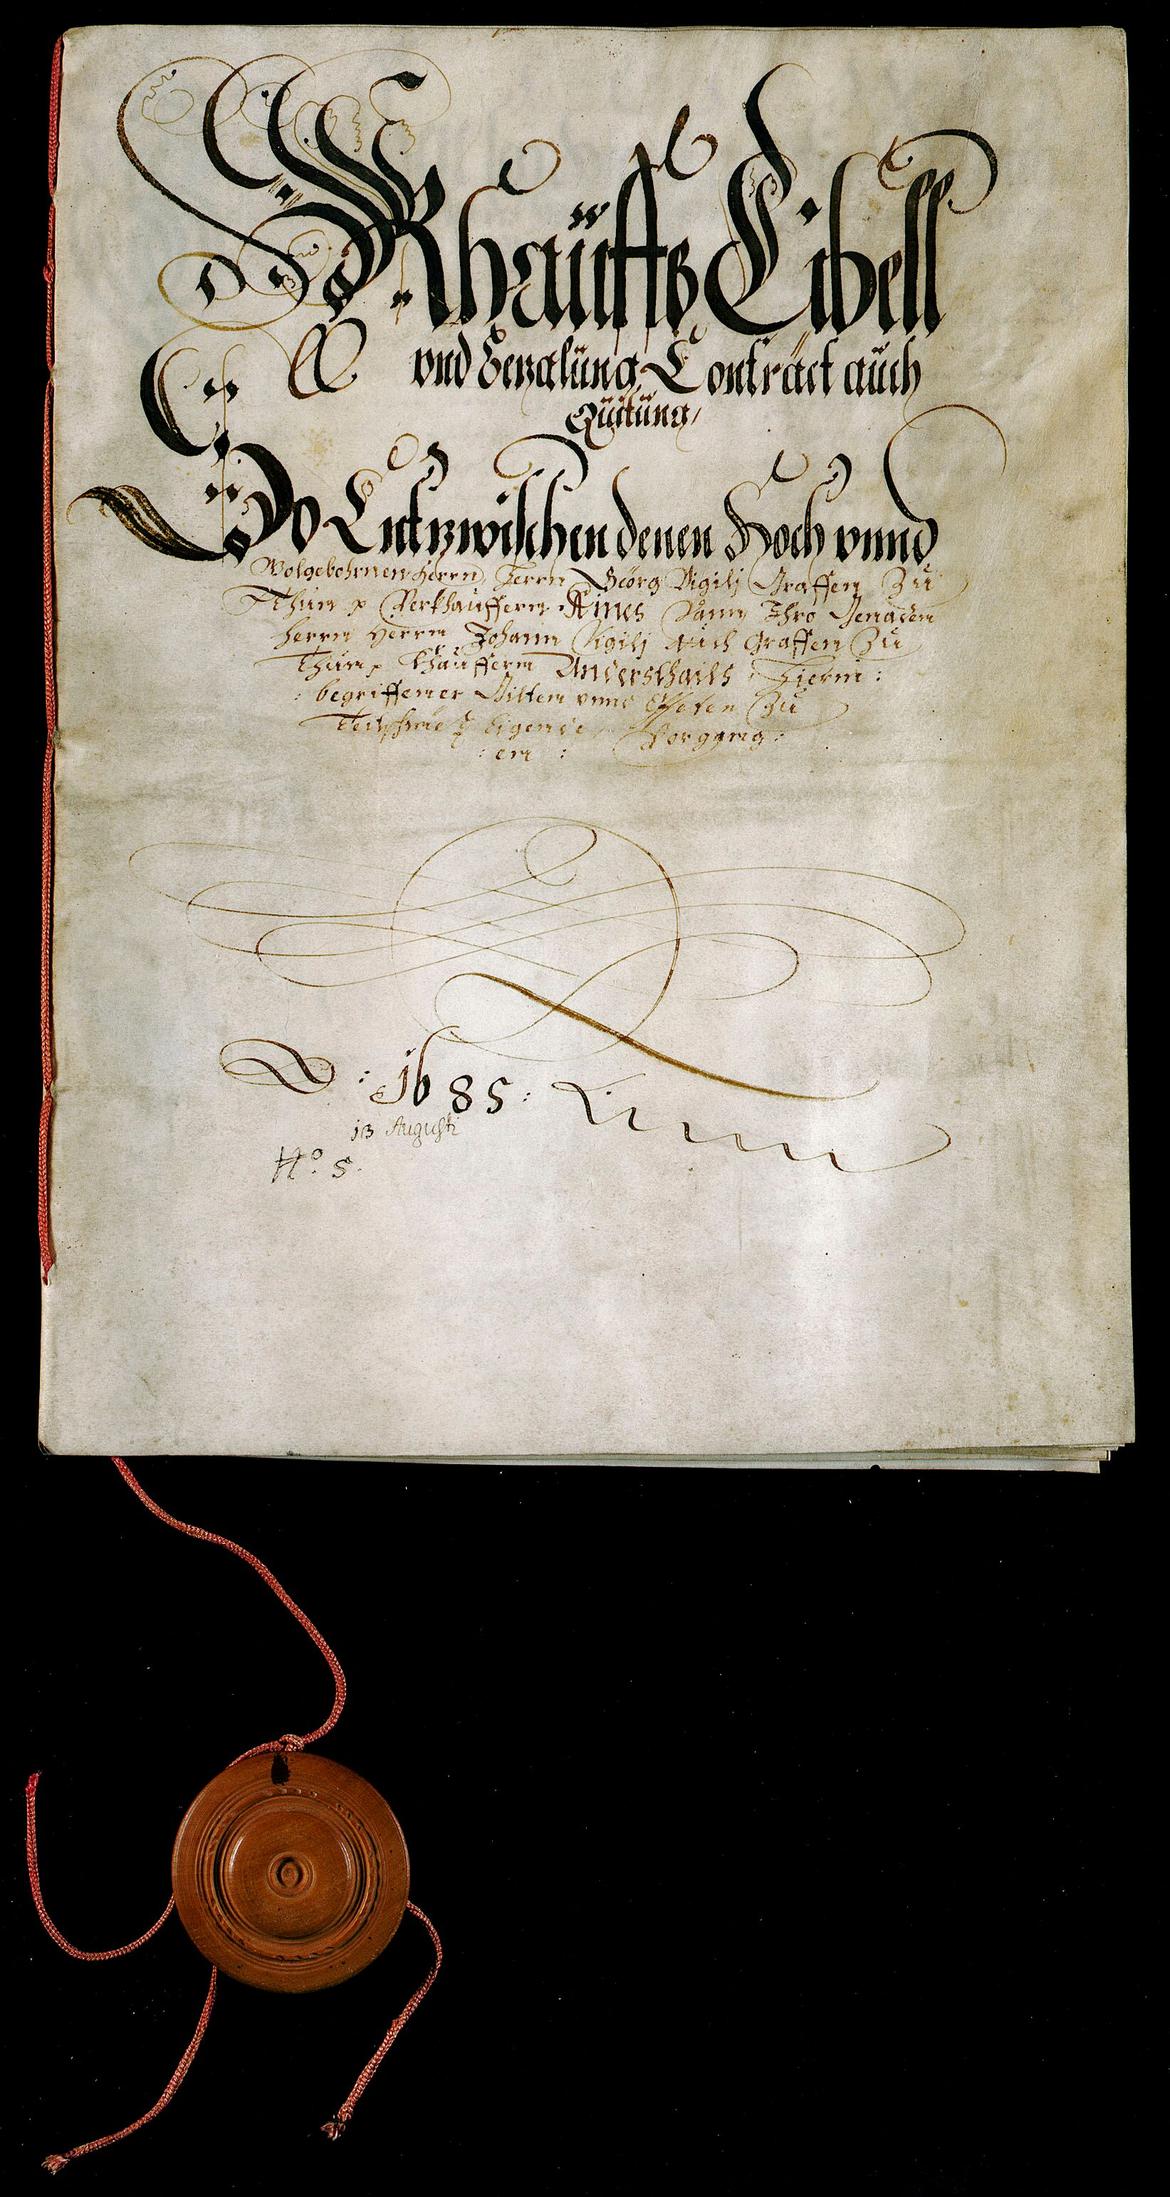 Khaüffs Libell
vnd Bezalüng Contract auch
Quitüng,
So Entzwischen denen Hoch vnnd
Wolgebohrnen Herrn, Herrn Geörg Sigilj Graffen Zu
Thün Verkhauffern Aines Dann Ihro Genaden
Herrn Herrn Johann Vigilj Auch Graffen Zü
Thün Khäuffern Andersthails Hierin:
begriffener Gilten vnnd
Vorgang:
: en :
: 1685 :
13 Augusti
No. 5.